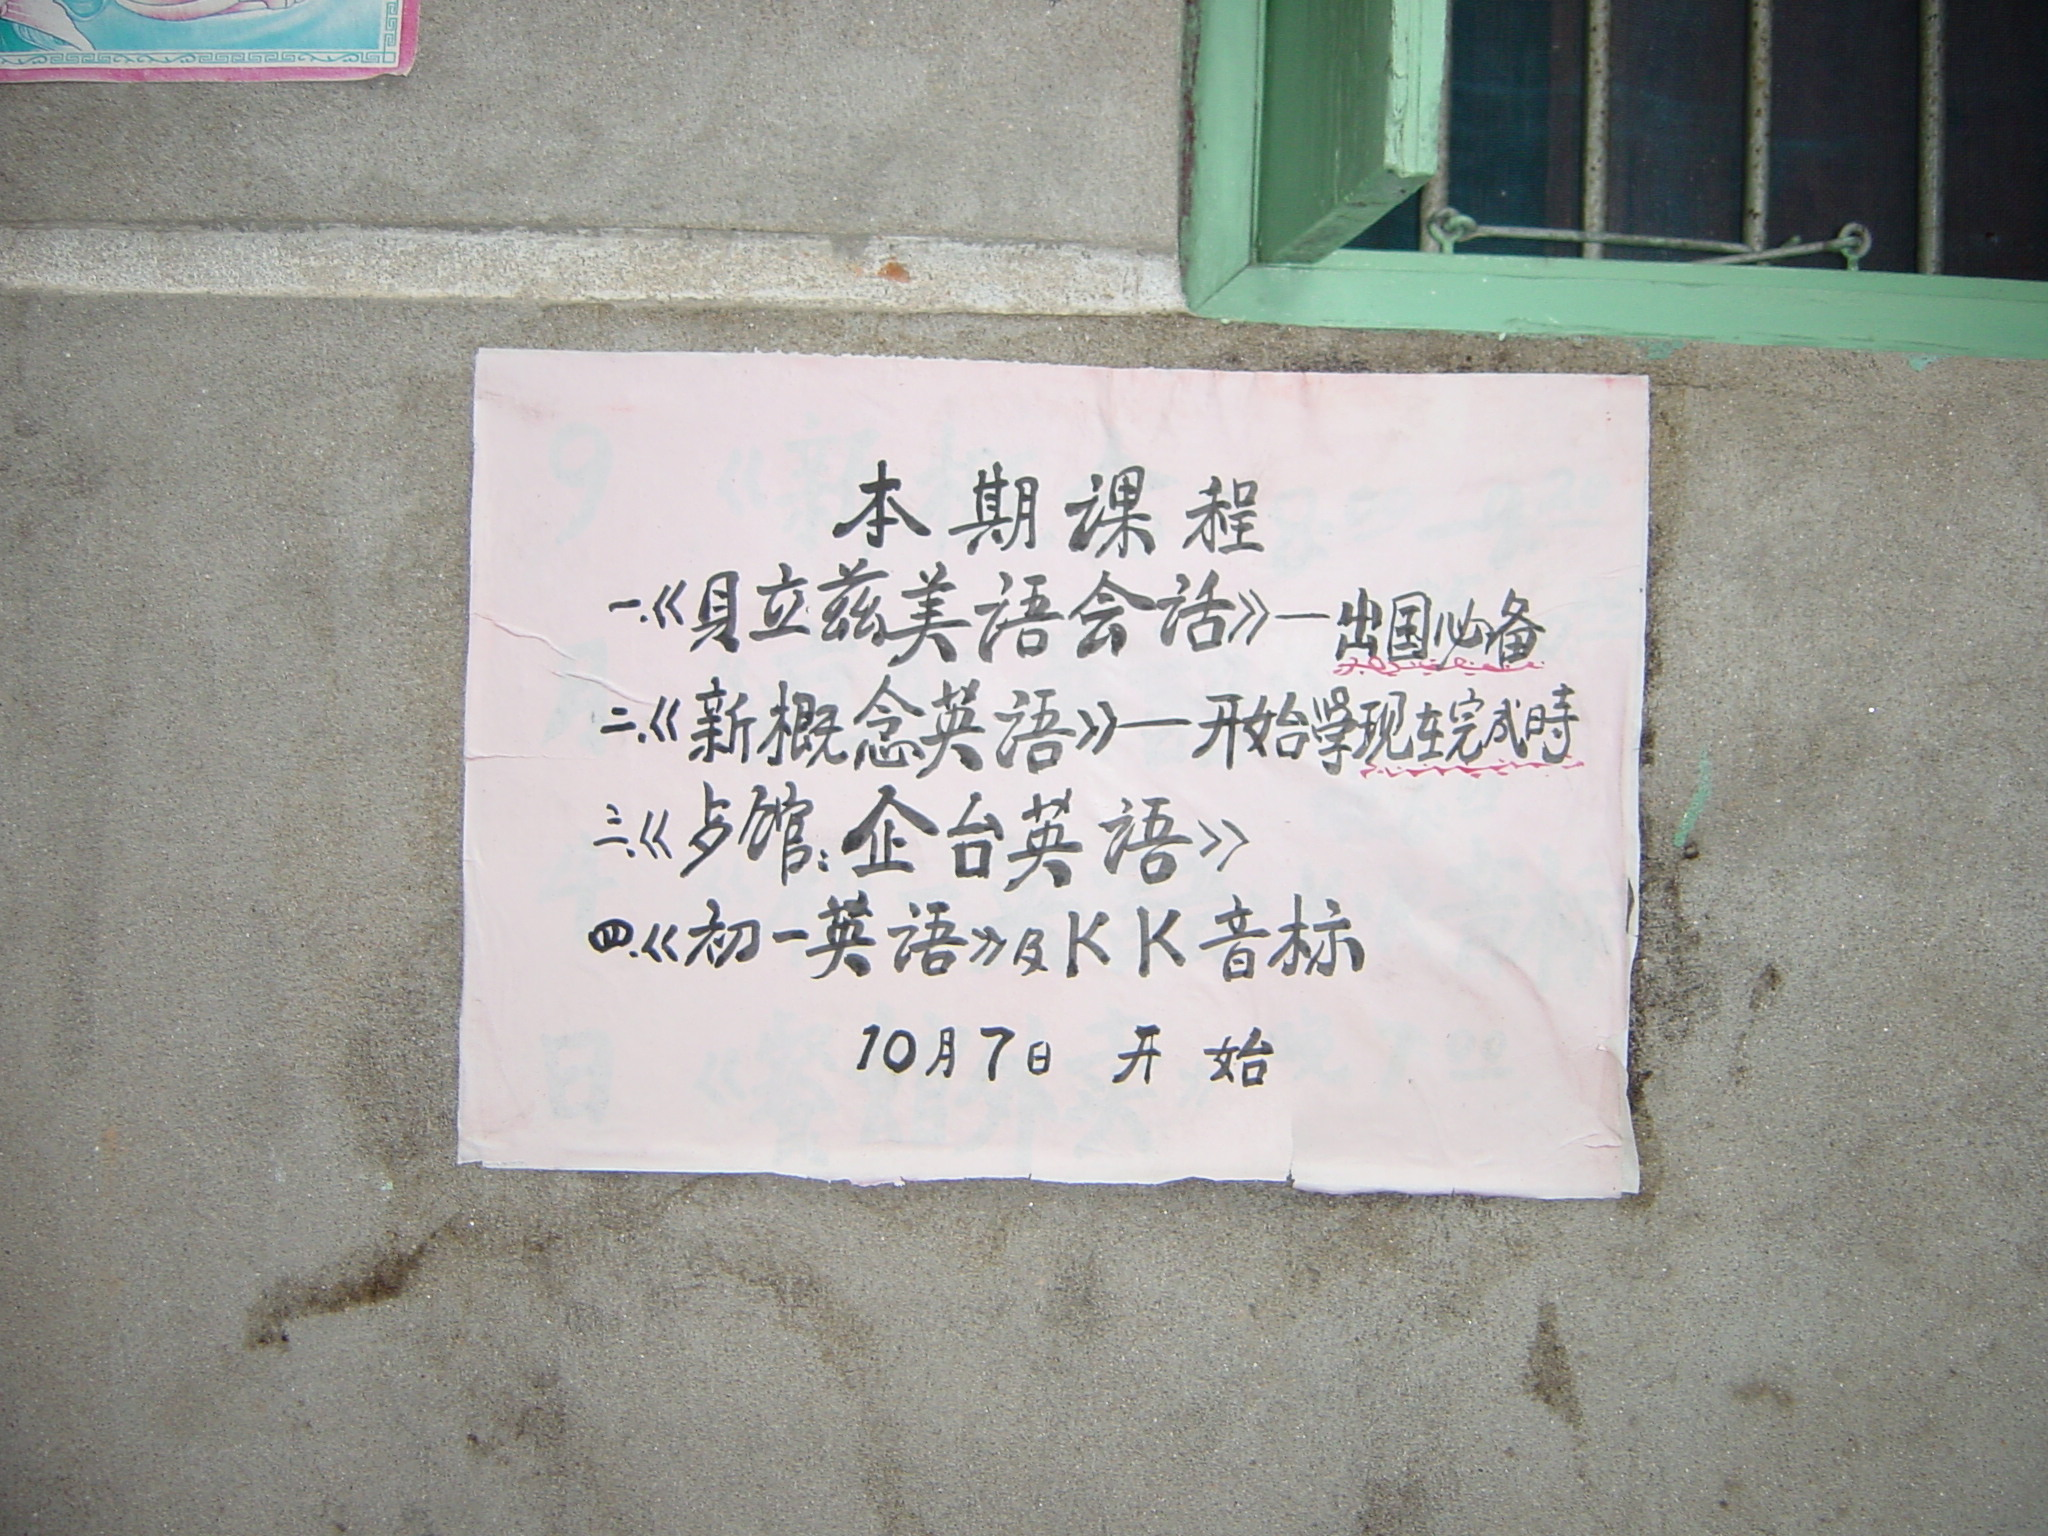 本期课程
一.《貝立兹美语会话》—出国必备
二.《新概念英语》—开始學现在完成時
三.《步馆:企台英语》
四.《初一英语》及KK音标
10月7日 开始